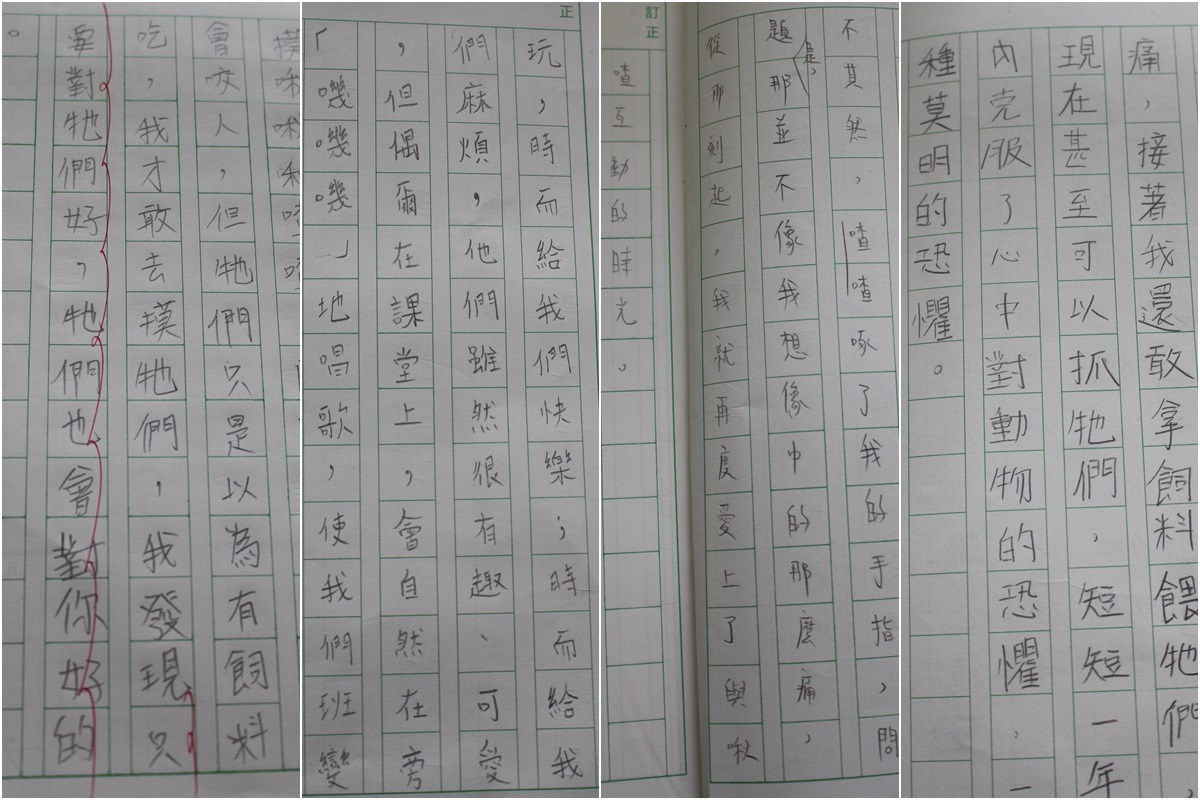 會咬人，但牠們只是以為有飼料
吃，我才敢去摸牠們，我發現只
要對牠們好，牠們也會對你好的
。
正
玩，時而給我們快樂；時而給我
們麻煩，他們雖然很有趣、可愛
，但偶爾在課堂上，會自然在旁
「嘰嘰嘰」地唱歌，使我們班變
不其然，喳喳啄了我的手指，問
題是，那並不像我想像中的那麼痛，
從那刻起，我就再度愛上了與啾
訂正
喳互動的時光。
痛，接著我還敢拿飼料餵牠們，
現在甚至可以抓牠們，短短一年
內克服了心中對動物的恐懼，一
種莫明的恐懼。